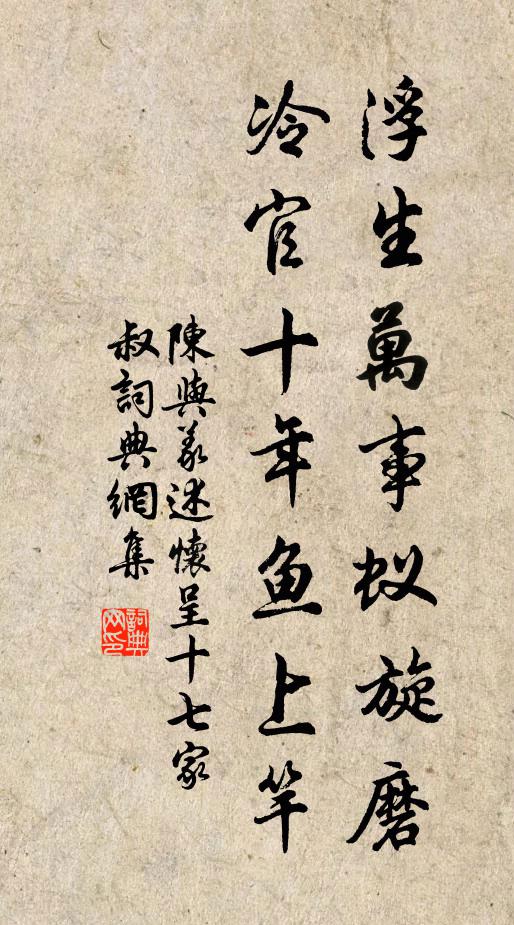 浮生萬事蚁旋磨
冷官十年鱼上竿
陳與義述懷呈十七家
叔詞典網集
詞典
网印